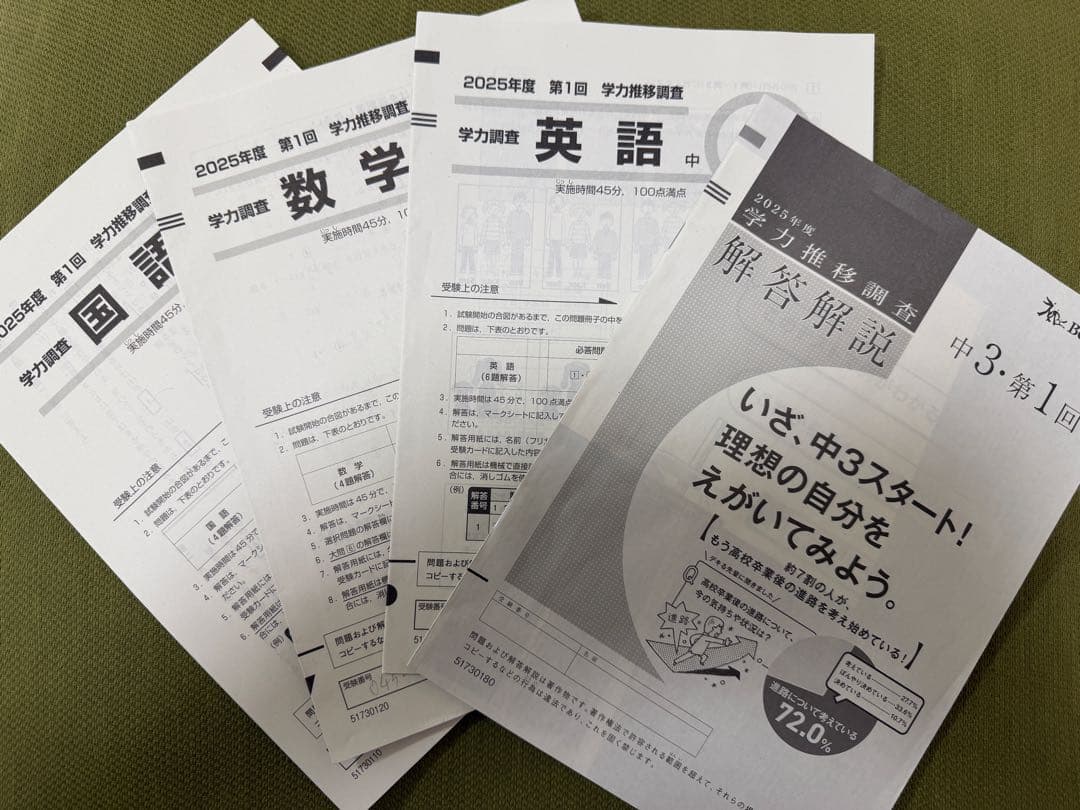 2025年度 第1回 学力推移調査
学力調査 国語
実施時間45分、
受験上の注意
1．試験開始の合図があるまで、こ
2．問題は、下表のとおりです。
国 語
(4題解答)
3．実施時間は45分で
4．解答は、マーク
ださい。
5．解答用紙には
受験カードに
6．解答用紙
合には、
(例)
51730110
2025年度 第1回 学力推移調査
学力調査 数学
実施時間45分、100
受験上の注意
1．試験開始の合図があるまで、この
2．問題は、下表のとおりです。
数 学
(4題解答)
3．実施時間は45分で、
4．解答は、マークシート
5．選択問題の解答欄に
6．大問⑥の解答欄に
7．解答用紙には、
受験カードに記
8．解答用紙は機
合には、消し
問題および解
コピーする
受験番号
51730120
2025年度 第1回 学力推移調査
学力調査 英語 中
実施時間45分、100点満点
受験上の注意
1．試験開始の合図があるまで、この問題冊子の中を
2．問題は、下表のとおりです。
必答問
英 語
(6題解答)
1・
3．実施時間は45分で、100点満点
4．解答は、マークシートに記入して
ださい。
5．解答用紙には、名前（フリガ
受験カードに記入した内容
6．解答用紙は機械で直接
合には、消しゴムを使
(例)
解答
番号
1
問題および
コピーする
受験番号
2025年度
学力推移調査
解答解説
中3・第1回
いざ、中3スタート！
理想の自分を
えがいてみよう。
もう高校卒業後の進路を考え始めている！
約7割の人が、
デキる先輩に聞きました
Q 高校卒業後の進路について、
今の気持ちや状況は？
進路
考えている 27.7%
ぼんやり決めている 33.6%
決めている 10.7%
進路について考えている
72.0%
受験番号
名前
問題および解答解説は著作物です。著作権法で許容される範囲を超えて、それらの
コピーするなどの行為は違法であり、これを固く禁じます。
51730180